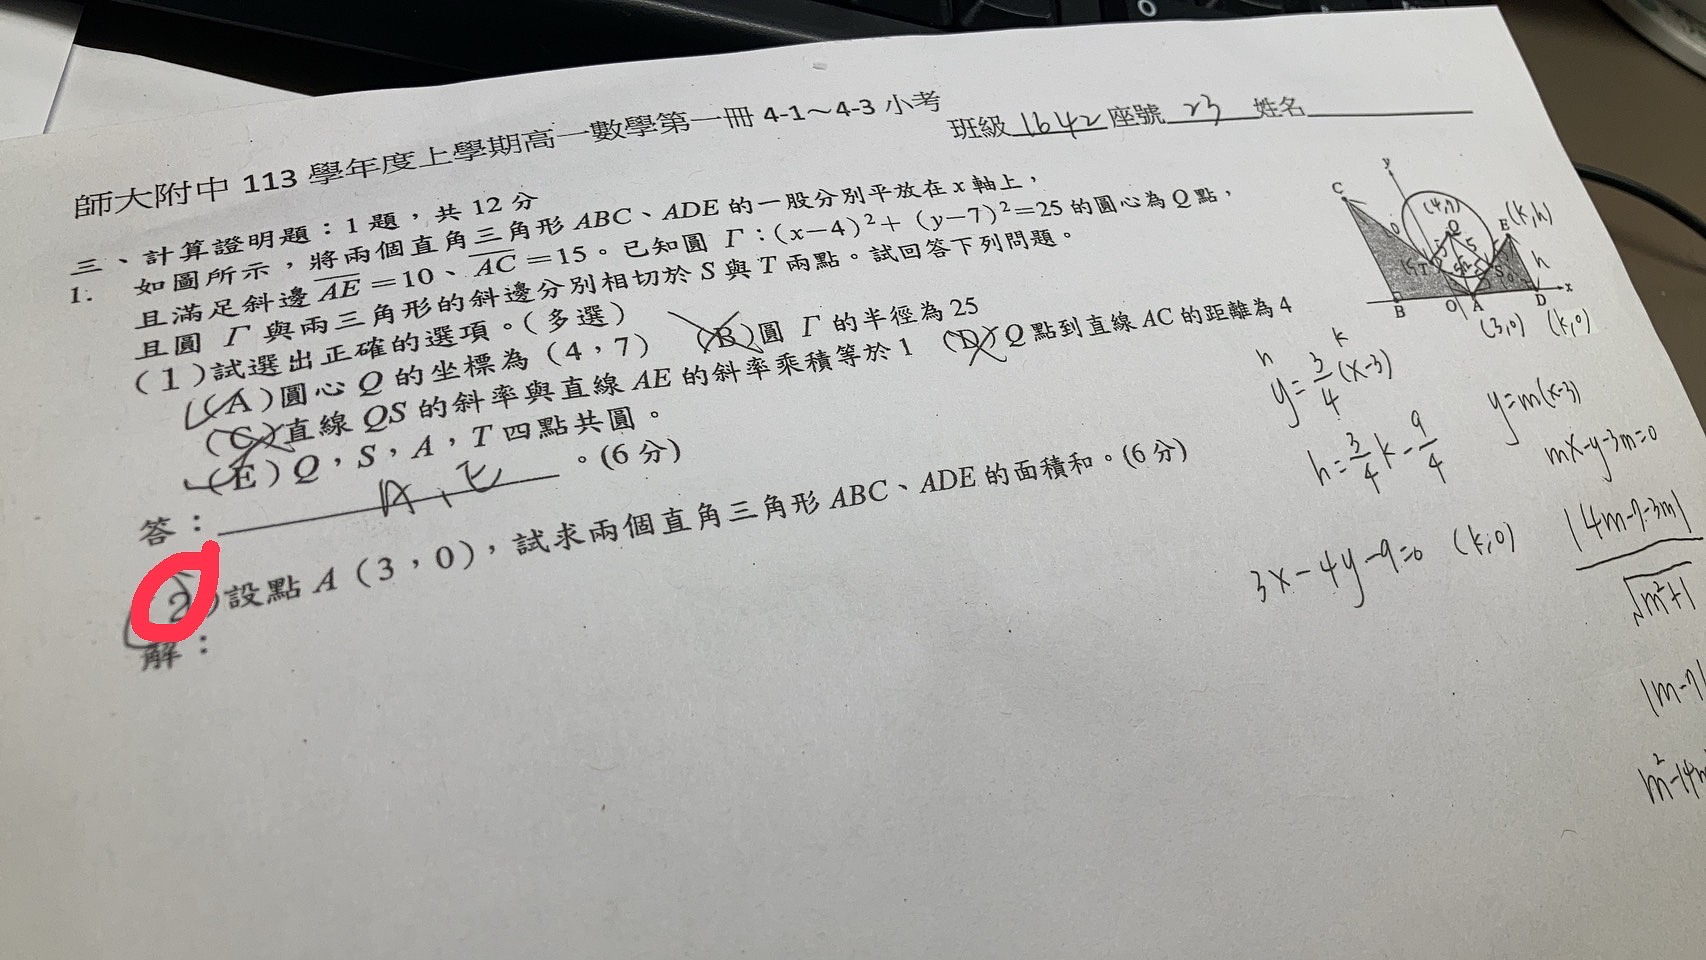 師大附中 113 學年度上學期高一數學第一冊 4-1～4-3 小考
班級 1642 座號 23 姓名
三、計算證明題：1 題，共 12 分
1. 如圖所示，將兩個直角三角形 ABC、ADE 的一股分別平放在 x 軸上，
且滿足斜邊 AE＝10、AC＝15。已知圓 Γ：(x－4)²＋(y－7)²＝25 的圓心為 Q 點，
且圓 Γ 與兩三角形的斜邊分別相切於 S 與 T 兩點。試回答下列問題。
(1)試選出正確的選項。(多選)
(A)圓心 Q 的坐標為（4，7） (B)圓 Γ 的半徑為 25
(C)直線 QS 的斜率與直線 AE 的斜率乘積等於 1 (D)Q 點到直線 AC 的距離為 4
(E)Q，S，A，T 四點共圓。
答： A、E 。(6 分)
(2)設點 A（3，0），試求兩個直角三角形 ABC、ADE 的面積和。(6 分)
解：
y
C
(4,7)
Q
E (k,h)
5
5
T
S
h
B O A D x
(3,0) (k,0)
h k
y=3/4(x-3)
h=3/4k-9/4
3x-4y-9=0 (k,0)
y=m(x-3)
mx-y-3m=0
|4m-7-3m|
√m²+1
|m-7|
m²-14m